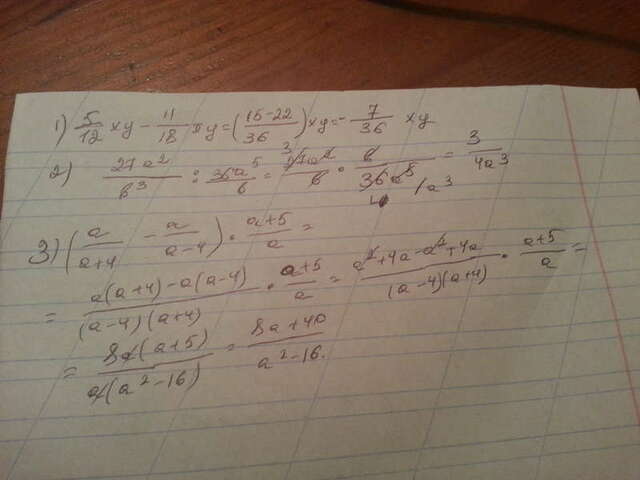 1) 5/12 xy - 11/18 xy = (15-22/36) xy = - 7/36 xy
2) 27a²/b³ : 36a⁵/b = 27a²/b · b/36a⁵ = 3/4a³
3) (a/a+4 - a/a-4) · a+5/a =
= a(a+4)-a(a-4)/(a-4)(a+4) · a+5/a = a²+4a-a²+4a/(a-4)(a+4) · a+5/a =
= 8a(a+5)/a(a²-16) = 8a+40/a²-16.